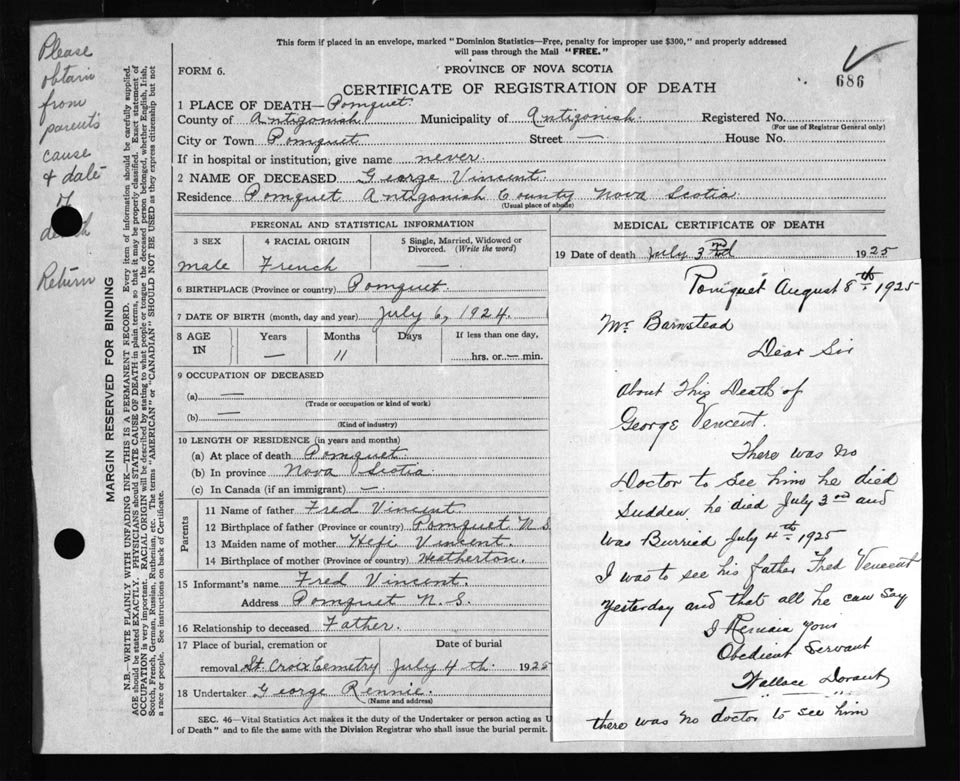 Please
obtain
from
parents
cause
& date
of
death
Return
MARGIN RESERVED FOR BINDING
N.B.—WRITE PLAINLY WITH UNFADING INK—THIS IS A PERMANENT RECORD. Every item of information should be carefully supplied.
AGE should be stated EXACTLY. PHYSICIANS should STATE CAUSE OF DEATH in plain terms, so that it may be properly classified. Exact statement of
OCCUPATION is very important. RACIAL ORIGIN will be described by stating to what people or tongue the deceased person belonged, whether English, Irish,
Scotch, French, German, Russian, Ruthenian, etc. The terms "AMERICAN" or "CANADIAN" SHOULD NOT BE USED as they express citizenship but not
a race or people. See instructions on back of Certificate.
This form if placed in an envelope, marked "Dominion Statistics—Free, penalty for improper use $300," and properly addressed
will pass through the Mail "FREE."
686
FORM 6.
PROVINCE OF NOVA SCOTIA
CERTIFICATE OF REGISTRATION OF DEATH
1 PLACE OF DEATH— Pomquet
County of Antigonish Municipality of Antigonish Registered No.
(For use of Registrar General only)
City or Town Pomquet Street — House No.
If in hospital or institution, give name never.
2 NAME OF DECEASED George Vincent
Residence Pomquet Antigonish County Nova Scotia
(Usual place of abode)
PERSONAL AND STATISTICAL INFORMATION
3 SEX 4 RACIAL ORIGIN 5 Single, Married, Widowed or
Divorced. (Write the word)
male French —
6 BIRTHPLACE (Province or country) Pomquet.
7 DATE OF BIRTH (month, day and year) July 6, 1924.
8 AGE Years Months Days If less than one day,
IN — 11 hrs. or — min.
9 OCCUPATION OF DECEASED
(a) —
(Trade or occupation or kind of work)
(b) —
(Kind of industry)
10 LENGTH OF RESIDENCE (in years and months)
(a) At place of death Pomquet
(b) In province Nova Scotia
(c) In Canada (if an immigrant) —
Parents
11 Name of father Fred Vincent
12 Birthplace of father (Province or country) Pomquet N.S.
13 Maiden name of mother Vincent
14 Birthplace of mother (Province or country) Heatherton.
15 Informant's name Fred Vincent.
Address Pomquet N.S.
16 Relationship to deceased Father.
17 Place of burial, cremation or Date of burial
removal St. Croix Cemetry July 4 th. 1925
18 Undertaker George Rennie.
(Name and address)
SEC. 46—Vital Statistics Act makes it the duty of the Undertaker or person acting as U
of Death" and to file the same with the Division Registrar who shall issue the burial permit.
MEDICAL CERTIFICATE OF DEATH
19 Date of death July 3rd 1925
Pomquet August 8th 1925
Mr Barnstead
Dear Sir
about This Death of
George Vencent.
There was no
Doctor to see him he died
Sudden he died July 3nd and
was Burried July 4th 1925
I was to see his father Fred Vencent
yesterday and that all he can say
I Remain your
Obedient Servant
Wallace Dorant
there was no doctor to see him